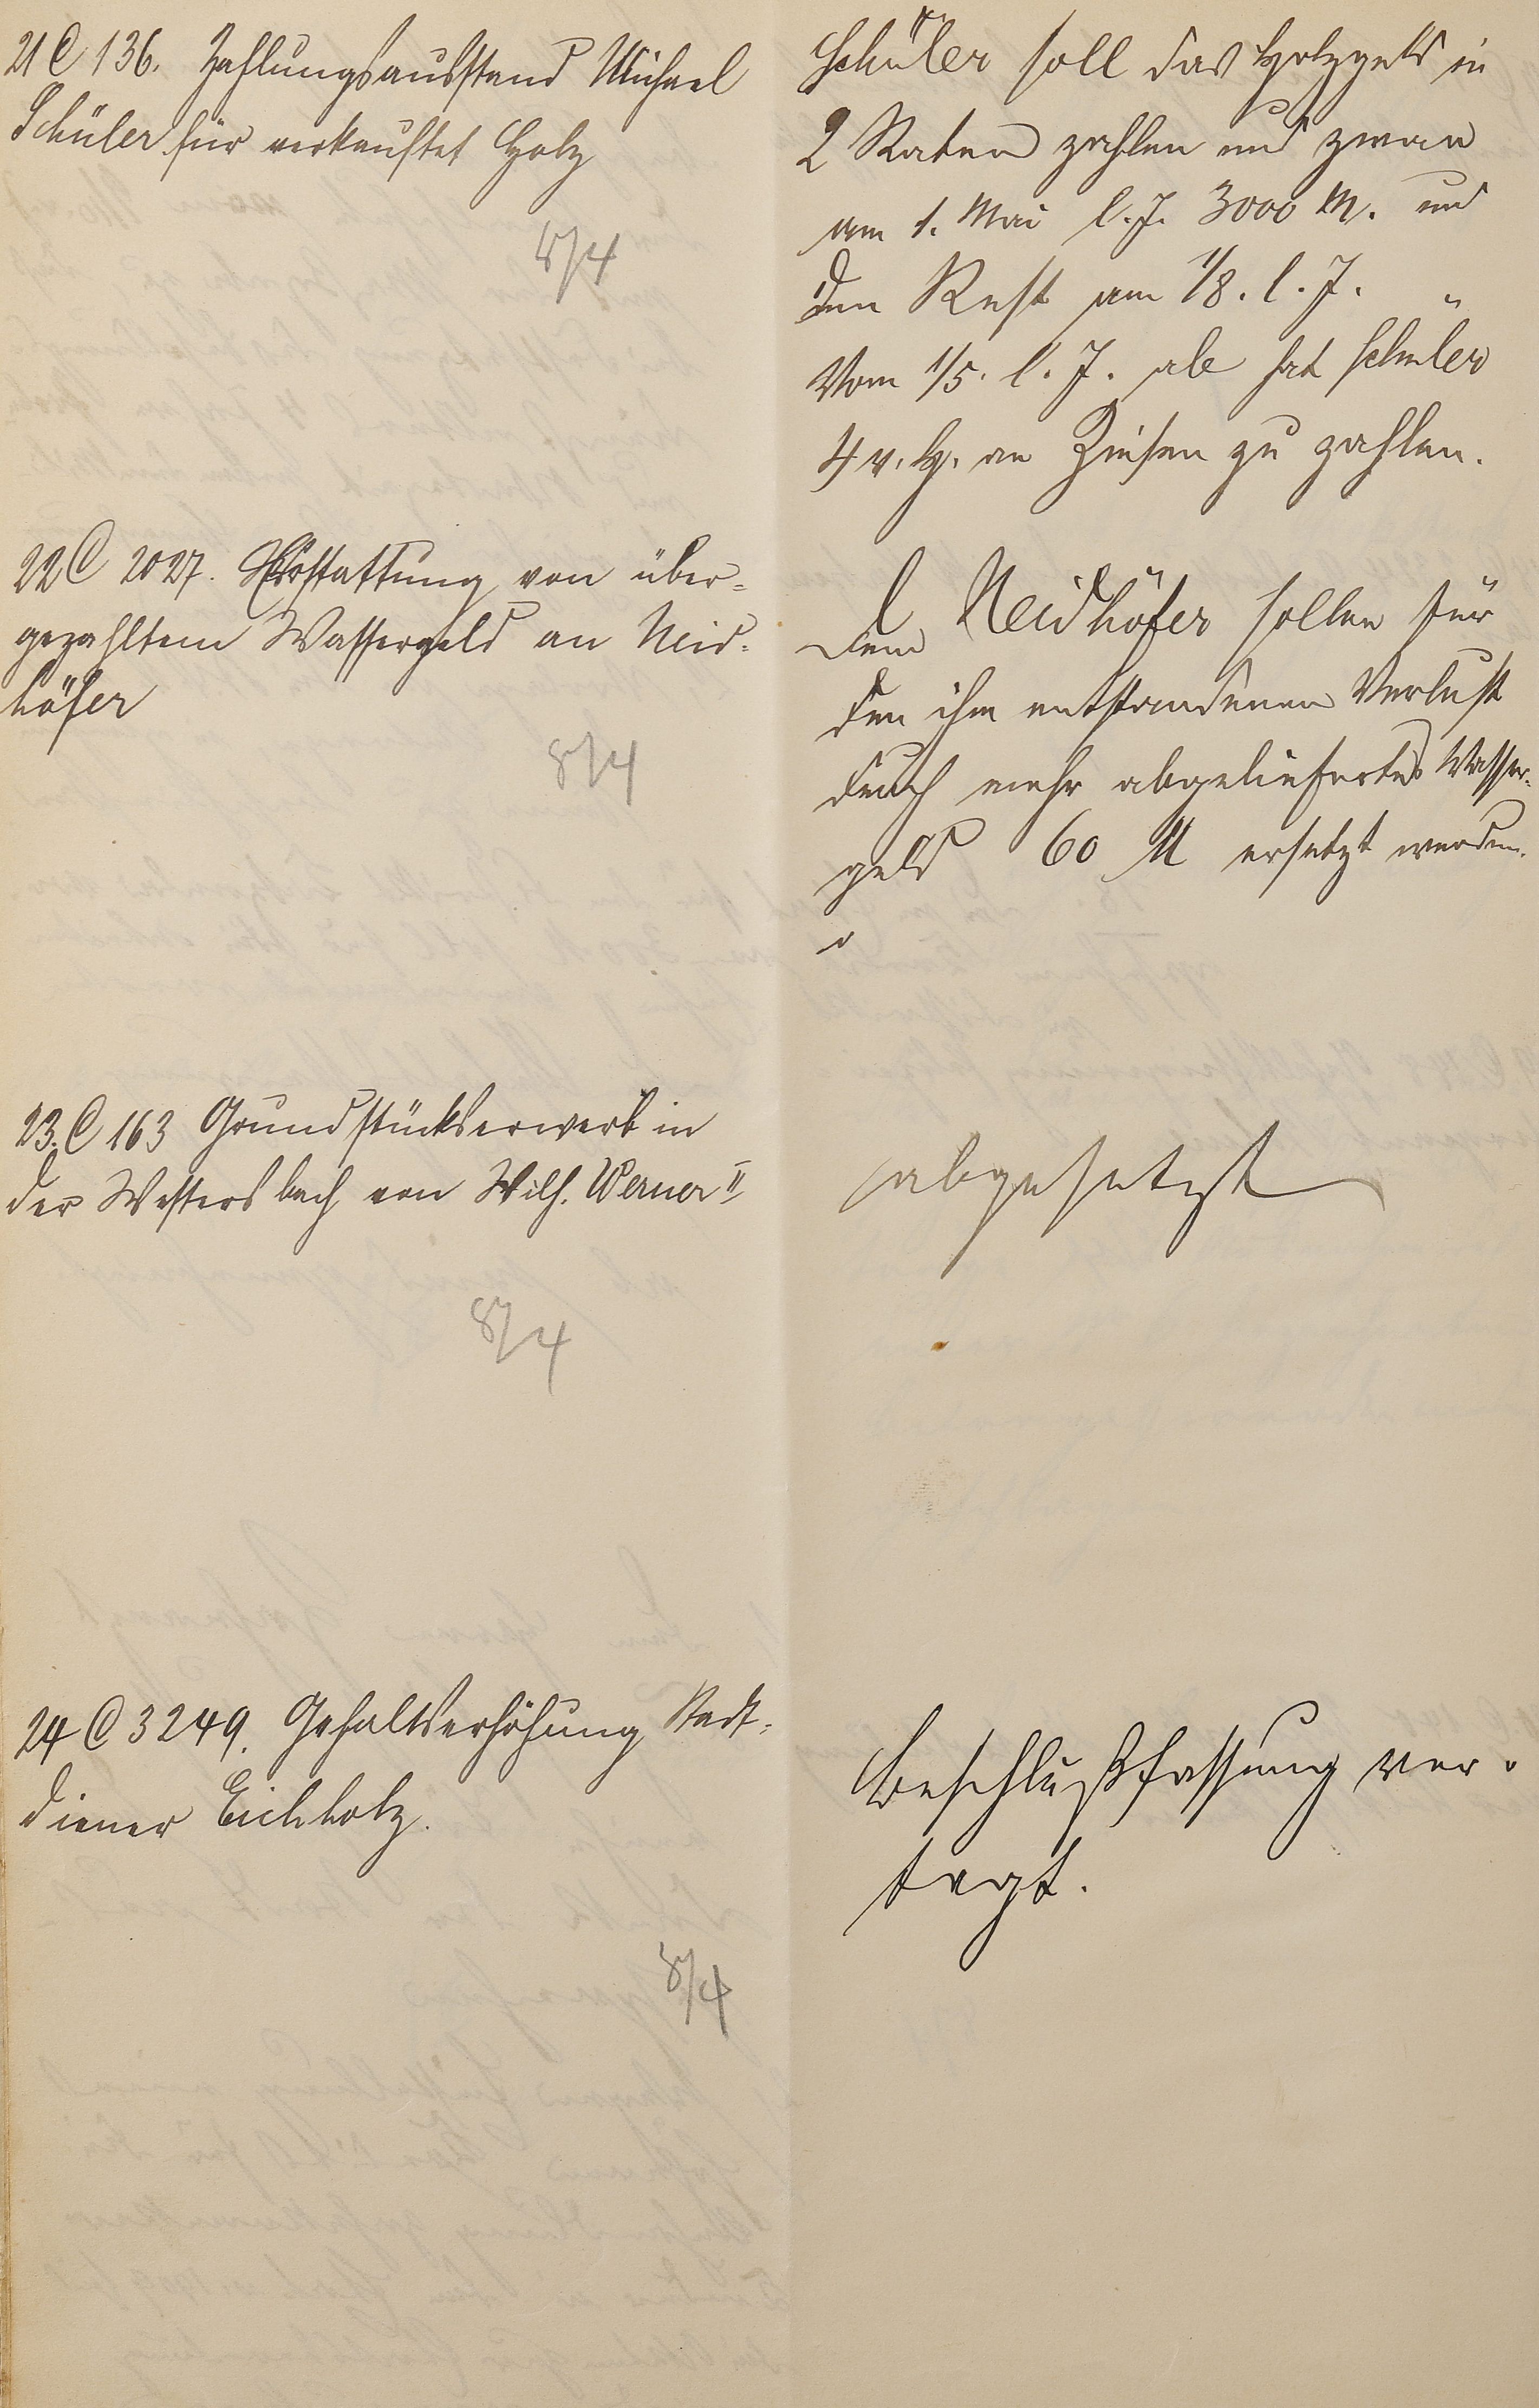 21 C 136. Zahlungsausstand Michael
Schüler für verkauftes Holz
8/4
Schüler soll das Holzgeld in
2 Raten zahlen und zwar
am 1. Mai l. J. 3000 M. und
den Rest am 1/8. l. J.
Vom 1/5. l. J. ab hat Schüler
4 v. H. an Zinsen zu zahlen.
22 C 2027. Erstattung von über-
gezahltem Wassergeld an Neid-
höfer
8/4
Dem Neidhöfer sollen für
den ihm entstandenen Verlust
durch mehr abgeliefertes Wasser-
geld 60 M ersetzt werden.
23. C 163 Grundstückserwerb in
der Westersbach von Wilh. Werner II
8/4
abgesetzt
24 C 3249. Gehaltserhöhung Stadt-
diener Eichholz.
8/4
Beschlußfassung ver-
tagt.